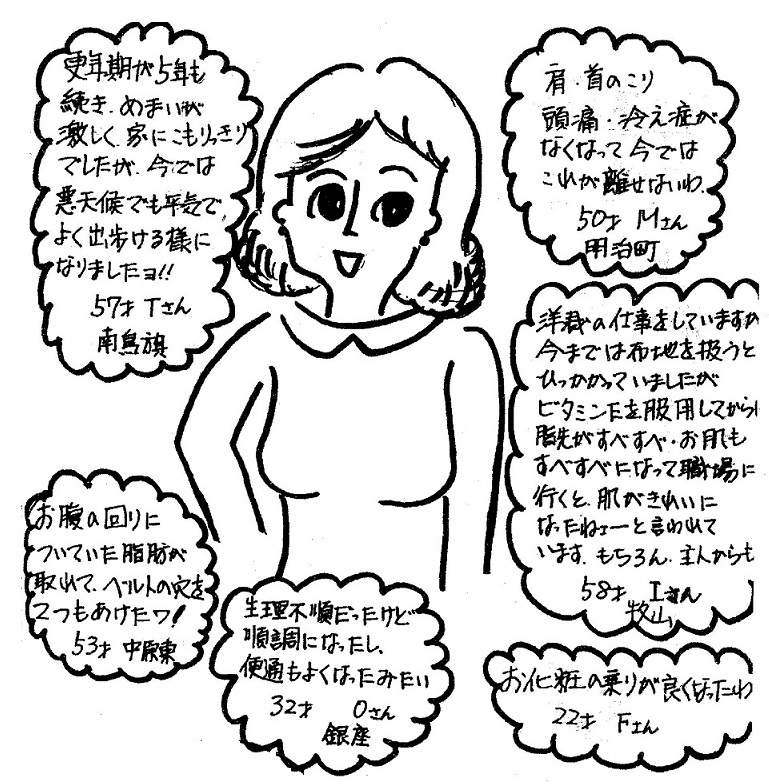 更年期が5年も
続き、めまいが
激しく、家にこもりっきり
でしたが、今では
悪天候でも平気で、
よく出歩ける様に
なりましたョ!!
57才 Tさん
南鳥旗
肩・首のこり
頭痛・冷え症が
なくなって今では
これが離せないわ.
50才 Mさん
明治町
洋裁の仕事をしていますが
今までは布地を扱うと
ひっかかっていましたが
ビタミンEを服用してから
指先がすべすべ・お肌も
すべすべになって職場に
行くと、肌がきれいに
なったねェーと言われて
います。もちろん、主人からも
58才 Iさん
牧山
お腹の回りに
ついていた脂肪が
取れて、ベルトの穴を
2つもあけたワ!
53才 中原東
生理不順だったけど
順調になったし、
便通もよくなったみたい
32才 Oさん
銀座
お化粧の乗りが良くなったわ
22才 Fさん